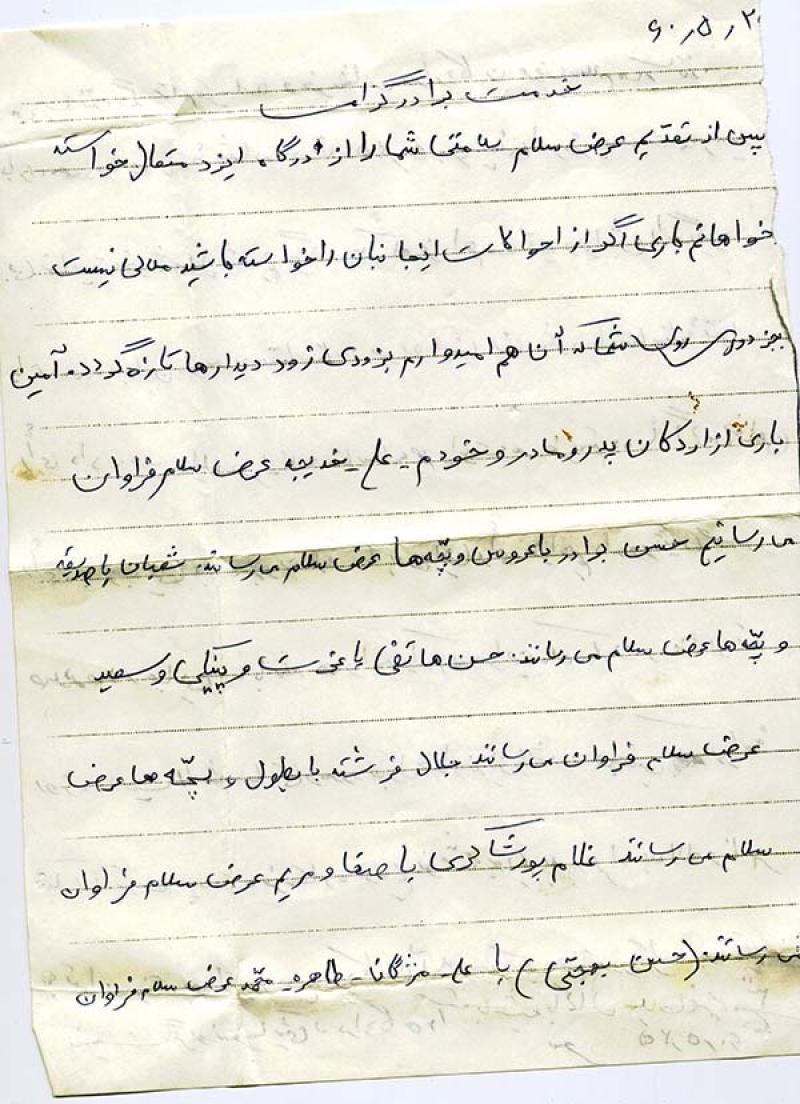 ۶۰٫۵٫۲۰
خدمت برادر گرامی
پس از تقدیم عرض سلام سلامتی شما را از درگاه ایزد متعال خواسته
خواهانم باری اگر از احوالات اینجانبان را خواسته باشید ملالی نیست
بجز دوری روی شما که آن هم امیدوارم بزودی زود دیدارها تازه گردد. آمین
باری از اردکان پدر و مادر و خودم - علی - خدیجه عرض سلام فراوان
می رسانیم حسن برادر با عروس و بچّه ها عرض سلام می رسانند. شعبان با صدیقه
و بچّه ها عرض سلام می رسانند. حسن هاتفی با عزت و وسعید
عرض سلام فراوان می رسانند جلال فرشته با بطول و بچّه ها عرض
سلام می رسانند غلام پورشاکری با صفا و مریم عرض سلام فراوان
می رسانند. (حسین بهجتی) با علی - مژگان - طاهره - محمّد عرض سلام فراوان